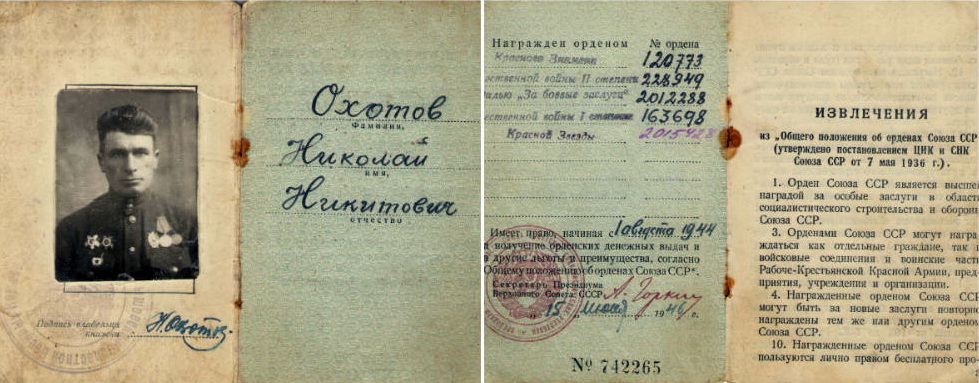 Подпись владельца
книжки
Н. Охотов
Охотов
Фамилия,
Николай
имя,
Никитович
отчество
Награжден орденом № ордена
Красного Знамени 120773
ественной войны II степени 228949
алью „За боевые заслуги" 2012288
ественной войны I степени 163698
Красной Звезды 2015428
Имеет право, начиная с 1 августа 1944
а получение орденских денежных выдач и
а другие льготы и преимущества, согласно
Общему положению об орденах Союза ССР".
Секретарь Президиума
Верховного Совета СССР А. Горкин
15 июня 1946 г.
№ 742265
ИЗВЛЕЧЕНИЯ
из „Общего положения об орденах Союза ССР
(утверждено постановлением ЦИК и СНК
Союза ССР от 7 мая 1936 г.).
1. Орден Союза ССР является высшей
наградой за особые заслуги в област
социалистического строительства и обороны
Союза ССР.
3. Орденами Союза ССР могут награ
ждаться как отдельные граждане, так и
войсковые соединения и воинские част
Рабоче-Крестьянской Красной Армии, пред
приятия, учреждения и организации.
4. Награжденные орденом Союза ССР
могут быть за новые заслуги повторно
награждены тем же или другим орденом
Союза ССР.
10. Награжденные орденом Союза ССР
пользуются лично правом бесплатного про-